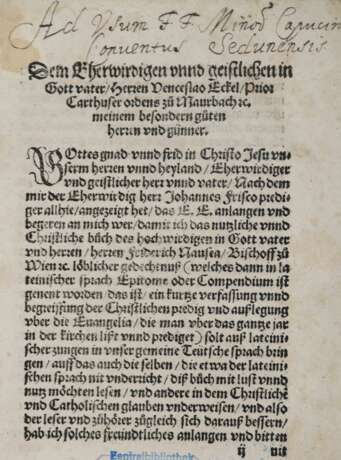 Ad Usum FF Minoȓ Capucin
Conventus Sedunensis
Dem Eherwirdigen vnnd geistlichen in
Gott vater/ Herren Venceslao Eckel/ Prior
Carthuser ordens zů Maurbach ꝛc.
meinem besondern gůten
herren vnd günner.
GOttes gnad vnnd frid in Christo Jesu vn-
serm herren vnnd heyland/ Eherwirdiger
vnd geistlicher herr vnnd vater/ Nach dem
mir der Eherwirdig herr Johannes Frisco predi
ger allhie/ angezeigt het/ das E. E. anlangen vnnd
begeren an mich wer/ damit ich das nutzliche vnnd
Christliche bůch des hochwirdigen in Gott vater
vnd herren/ herren Friderich Nausea/ Bischoff zů
Wien ꝛc. löblicher gedechtnuß (welches dann in la-
teinischer sprach Epitome oder Compendium ist
genent worden/ das ist/ ein kurtze verfassung vnnd
begreiffung der Christlichen predig vnd außlegung
vber die Euangelia/ die man vber das gantze jar
in der kirchen lißt vnnd prediget) solt auß lateini-
scher zungen in vnser gemeine Teutsche sprach brin
gen/ auff das auch die selben/ die etwa der lateini-
schen sprach nit vndericht/ diß bůch mit lust vnnd
nutz möchten lesen/ vnd andere in dem Christliche̅
vnd Catholischen glauben vnderweisen/ vnd also
der leser vnd zůhörer zůgleich sich darauß bessern/
hab ich solches freundtliches anlangen vnd bitten
ij nit
Zentralbibliothek